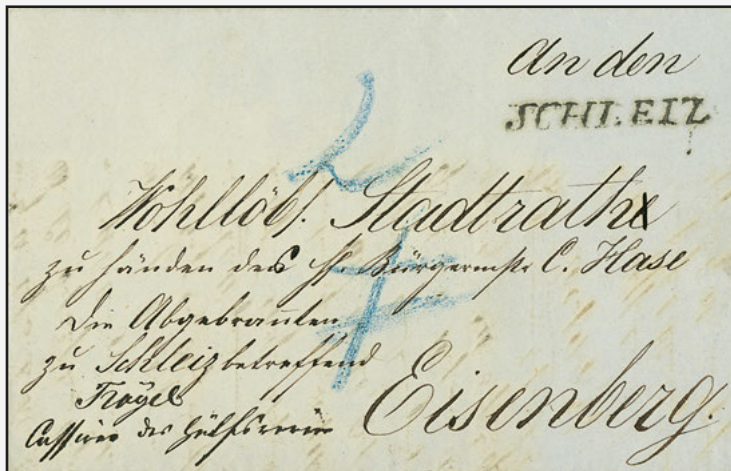 An den
SCHLEIZ
2
Wohllöbl. Stadtrath
zu Händen des H. Bürgermstr C. Hase
Die Abgebrannten
zu Schleiz betreffend
Cassirer des Hülfsverein
Eisenberg.